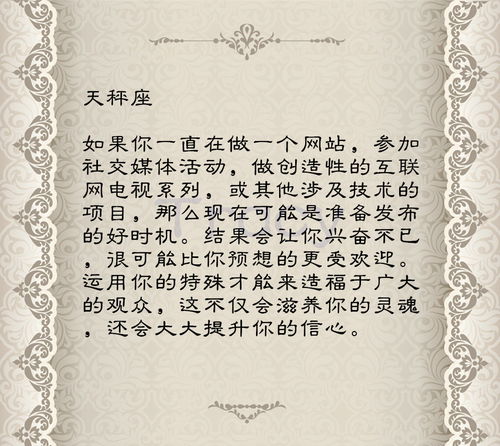 天秤座
如果你一直在做一个网站，参加
社交媒体活动，做创造性的互联
网电视系列，或其他涉及技术的
项目，那么现在可能是准备发布
的好时机。结果会让你兴奋不已
，很可能比你预想的更受欢迎。
运用你的特殊才能来造福于广大
的观众，这不仅会滋养你的灵魂
，还会大大提升你的信心。